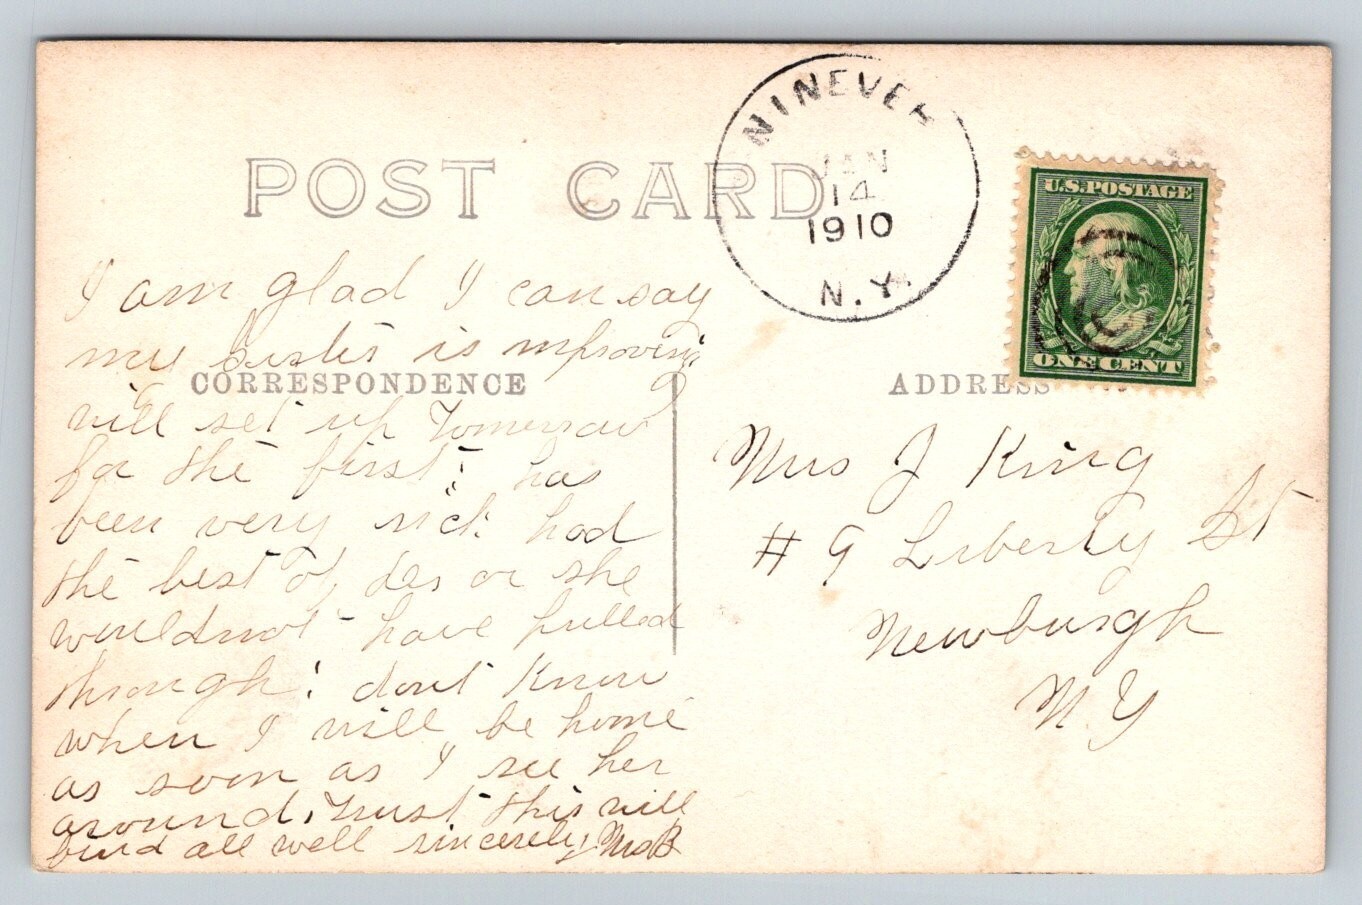 POST CARD
NINEVEH
JAN
14
1910
N.Y.
U.S. POSTAGE
ONE CENT
CORRESPONDENCE
ADDRESS
I am glad I can say
my sister is improving
will set up Tomorrow
for the first; has
been very sick had
the best of, or she
wouldnot have pulled
through! dont Know
when I will be home
as soon as I see her
around, trust this will
find all well sincerely Mrs B
Mrs J King
# 9 Liberty St
Newburgh
N Y